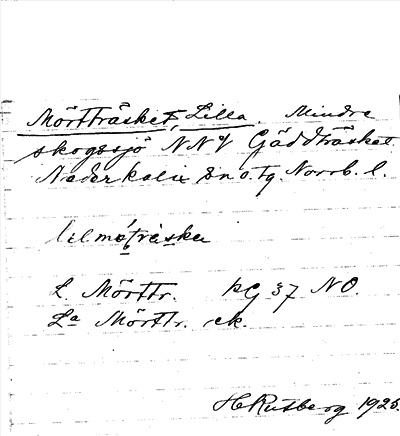 Mörtträsket, Lilla. Mindre
skogssjö NNV Gäddträsket
Nederkalix sn o. tg. Norrb. l.
lilmǫtrạska
L. Mörttr. kG 37 NO.
La Mörttr. ek.
H Rutberg 1925.